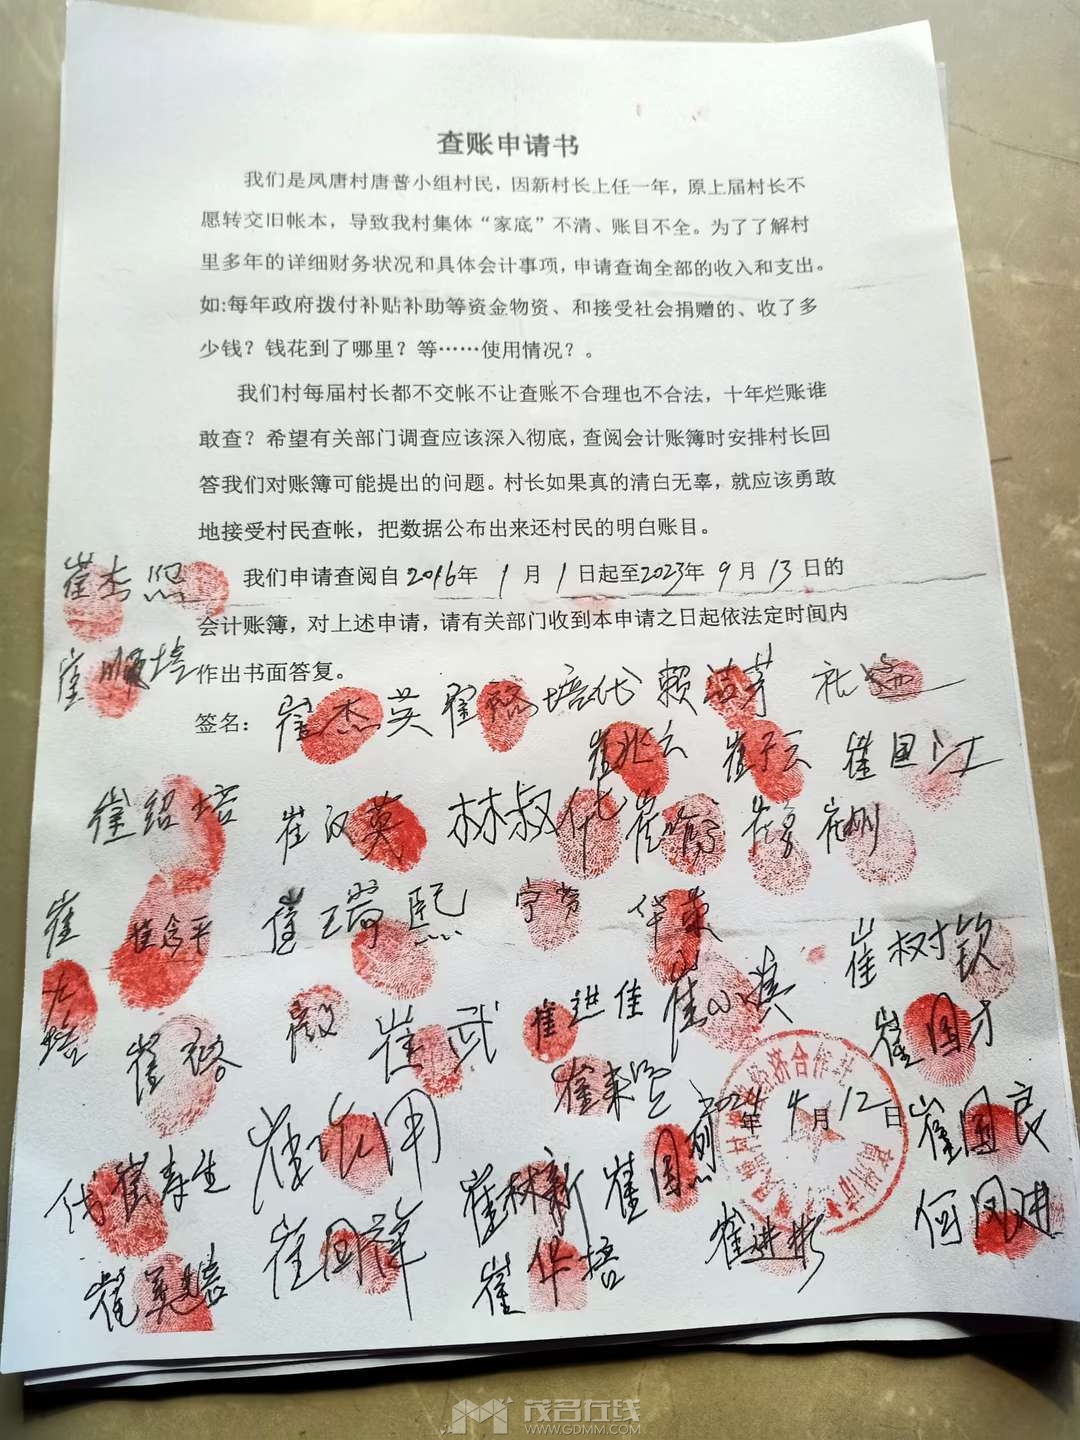 查账申请书
我们是凤唐村唐普小组村民，因新村长上任一年，原上届村长不
愿转交旧帐本，导致我村集体“家底”不清、账目不全。为了了解村
里多年的详细财务状况和具体会计事项，申请查询全部的收入和支出。
如:每年政府拨付补贴补助等资金物资、和接受社会捐赠的、收了多
少钱？钱花到了哪里？等……使用情况？。
我们村每届村长都不交帐不让查账不合理也不合法，十年烂账谁
敢查？希望有关部门调查应该深入彻底，查阅会计账簿时安排村长回
答我们对账簿可能提出的问题。村长如果真的清白无辜，就应该勇敢
地接受村民查帐，把数据公布出来还村民的明白账目。
崔杰熙
我们申请查阅自2016年1月1日起至2023年9月13日的
会计账簿，对上述申请，请有关部门收到本申请之日起依法定时间内
崔顺培
作出书面答复。
签名：崔杰英 培代 赖洁芽
崔兆云 崔子云 崔国江
崔绍培 崔汉英 林叔代
崔 崔念平 崔瑞熙 华荣 崔树钦
崔武 崔进佳 崔小滨 崔国才
崔来 2024年4月12日 崔国良
经济合作社
代崔寿生 崔林新 崔国烈 崔进彬 何凤进
崔国祥 崔华培
茂名在线
WWW.GDMM.COM